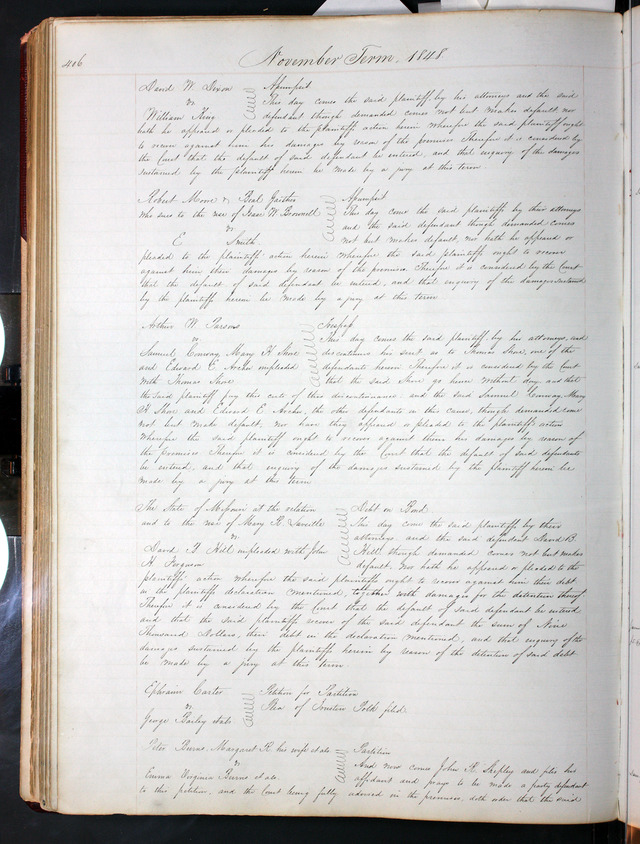 406 November Term, 1848
David W. Dixon Assumpsit
vs This day comes the said plaintiff by his attorneys and the said
William King defendant though demanded comes not but makes default, nor
hath he appeared or pleaded to the plaintiffs action herein wherefore the said plaintiff ought
to recover against him his damages by reason of the premises Therefore it is considered by
the Court that the default of said defendant be entered, and that enquiry of the damages
sustained by the plaintiff herein be made by a jury at this term
Robert Moore & Beal Gaither Assumpsit
who sues to the use of Isaac W. Brownell This day come the said plaintiffs by their attorneys
vs and the said defendant though demanded comes
E Smith not but makes default, nor hath he appeared or
pleaded to the plaintiffs action herein wherefore the said plaintiffs ought to recover
against him their damages by reason of the premises. Therefore it is considered by the Court
that the default of said defendant be entered, and that enquiry of the damages sustained
by the plaintiffs herein be made by a jury at this term
Arthur W. Parsons Trespass
vs This day comes the said plaintiff by his attorneys and
Samuel Conway, Mary H Shore discontinues his suit as to Thomas Shore, one of the
and Edward E. Archer impleaded defendants herein Therefore it is considered by the Court
with Thomas Shore that the said Shore go hence without day and that
the said plaintiff pay the cost of this discontinuance: and the said Samuel Conway, Mary
H Shore and Edward E. Archer, the other defendants in this cause, though demanded come
not but make default, nor have they appeared or pleaded to the plaintiffs action
wherefore the said plaintiff ought to recover against them his damages by reason of
the premises Therefore it is considered by the Court that the default of said defendants
be entered, and that enquiry of the damages sustained by the plaintiff herein be
made by a jury at this term
The State of Missouri at the relation Debt on Bond
and to the use of Mary R. This day come the said plaintiff by their
vs attorneys, and the said defendant David B.
David B Hill impleaded with John Hill though demanded comes not but makes
H Ferguson default. Nor hath he appeared or pleaded to the
plaintiffs action wherefore the said plaintiffs ought to recover against him their debt
in the plaintiffs declaration mentioned, together with damages for the detention thereof
Therefore it is considered by the Court that the default of said defendant be entered
and that the said plaintiffs recover of the said defendant the sum of Nine
Thousand Dollars, their debt in the declaration mentioned, and that enquiry of the
damages sustained by the plaintiffs herein by reason of the detention of said debt
be made by a jury at this term.
Ephraim Carter Petition for Partition
vs Plea of Trusten Polk filed.
George Bailey et als
Peter Burns, Margaret R. his wife et als Partition
vs And now comes John R. Shepley and files his
Emma Virginia Burns et als. affidavit and prays to be made a party defendant
to this petition, and the Court being fully advised in the premises, doth order that the said